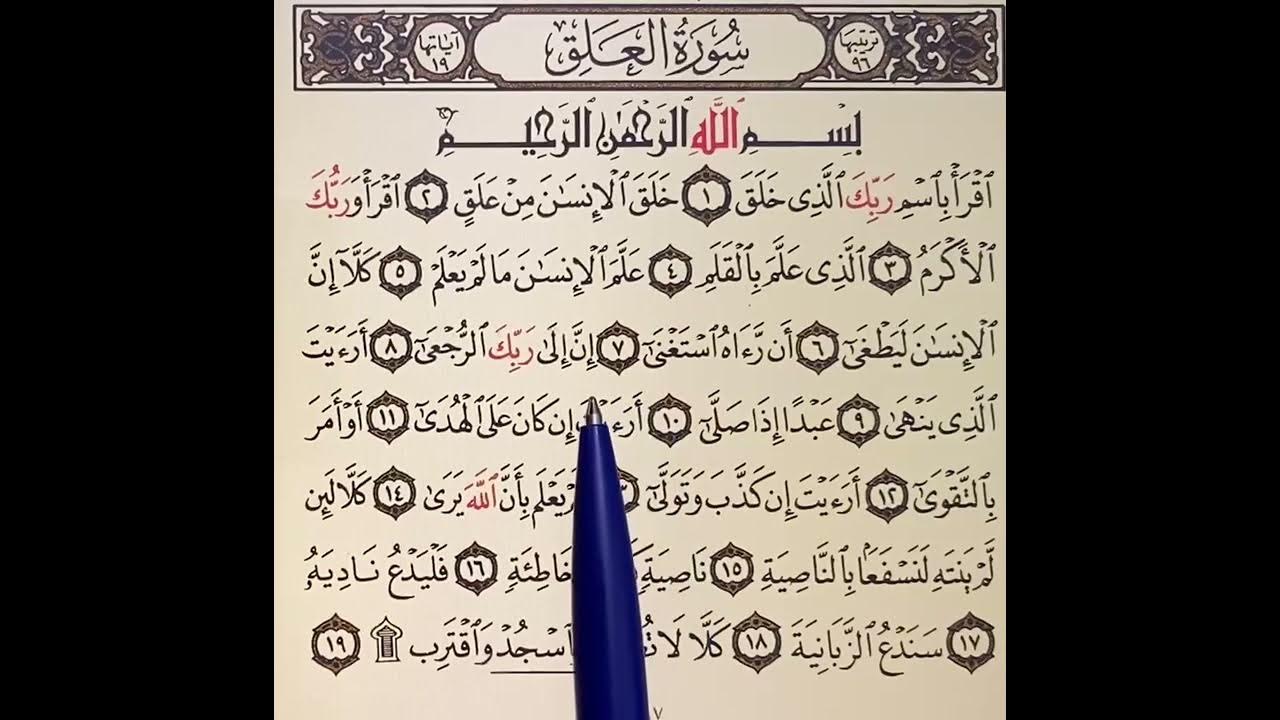 ترتيبها ٩٦ سُورَةُ الْعَلَقِ آياتها ١٩
بِسْمِ ٱللَّهِ ٱلرَّحْمَٰنِ ٱلرَّحِيمِ
ٱقْرَأْ بِٱسْمِ رَبِّكَ ٱلَّذِى خَلَقَ ١ خَلَقَ ٱلْإِنسَٰنَ مِنْ عَلَقٍ ٢ ٱقْرَأْ وَرَبُّكَ
ٱلْأَكْرَمُ ٣ ٱلَّذِى عَلَّمَ بِٱلْقَلَمِ ٤ عَلَّمَ ٱلْإِنسَٰنَ مَا لَمْ يَعْلَمْ ٥ كَلَّآ إِنَّ
ٱلْإِنسَٰنَ لَيَطْغَىٰٓ ٦ أَن رَّءَاهُ ٱسْتَغْنَىٰٓ ٧ إِنَّ إِلَىٰ رَبِّكَ ٱلرُّجْعَىٰٓ ٨ أَرَءَيْتَ
ٱلَّذِى يَنْهَىٰ ٩ عَبْدًا إِذَا صَلَّىٰٓ ١٠ إِن كَانَ عَلَى ٱلْهُدَىٰٓ ١١ أَوْ أَمَرَ
بِٱلتَّقْوَىٰٓ ١٢ أَرَءَيْتَ إِن كَذَّبَ وَتَوَلَّىٰٓ يَعْلَم بِأَنَّ ٱللَّهَ يَرَىٰ ١٤ كَلَّا لَئِن
لَّمْ يَنتَهِ لَنَسْفَعًۢا بِٱلنَّاصِيَةِ ١٥ نَاصِيَةٍ خَاطِئَةٍ ١٦ فَلْيَدْعُ نَادِيَهُۥ
١٧ سَنَدْعُ ٱلزَّبَانِيَةَ ١٨ كَلَّا لَا وَٱسْجُدْ وَٱقْتَرِب ۩ ١٩
٧